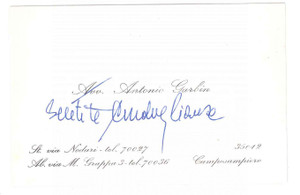 Avv. Antonio Garbin
Sentite Condoglianze
St. via Nodari - tel. 70027
35012
Ab. via M. Grappa 3 - tel. 70036
Camposampiero